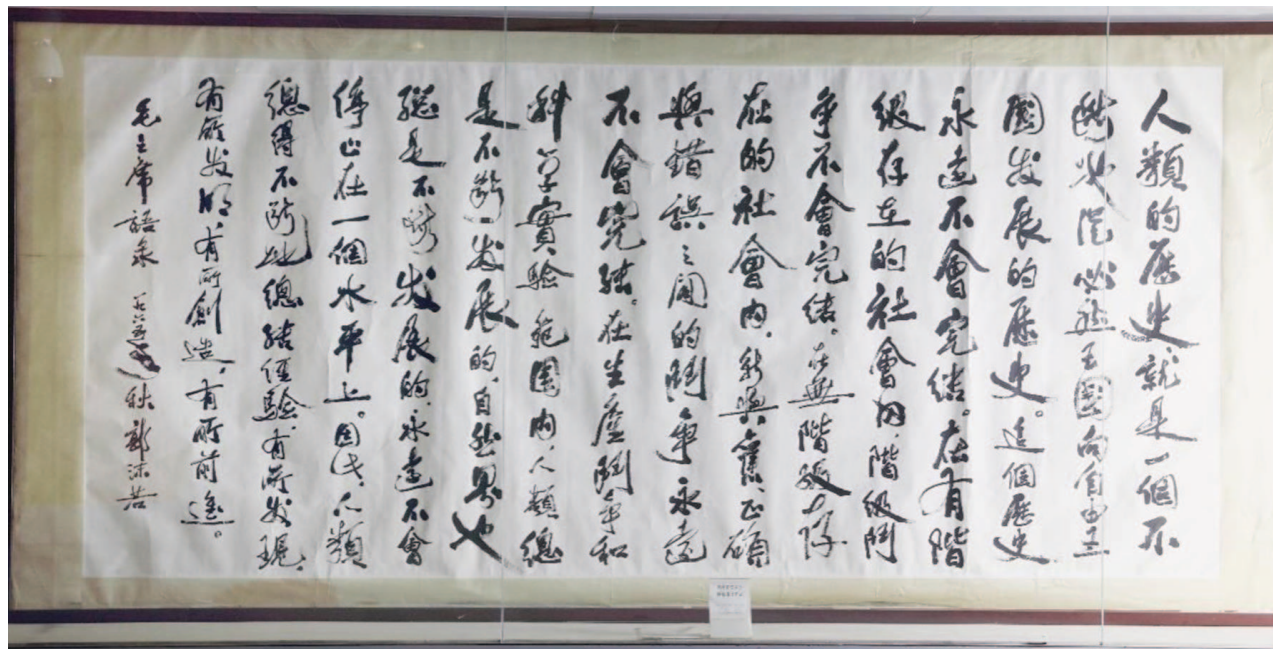 人類的歷史,就是一個不
斷地從必然王國向自由王
國发展的歷史。這個歷史
永遠不會完結。在有階
級存在的社會内,階級鬥
爭不會完結。在無階級存
在的社會内,新與舊、正確
與錯誤之間的鬥爭永遠
不會完結。在生產鬥爭和
科学實驗範圍内,人類總
是不斷发展的,自然界也
總是不斷发展的,永遠不會
停止在一個水平上。因此,人類
總得不斷地總結經驗,有所发現,
有所发明,有所創造,有所前進。
毛主席語录 秋 郭沫若